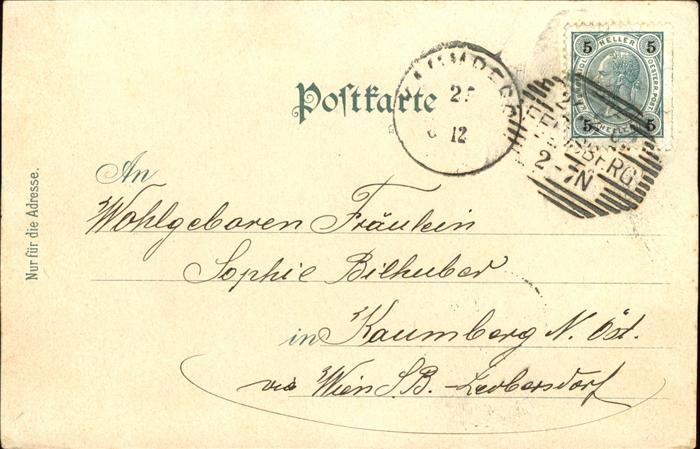 Postkarte
5 HELLER 5
OESTERR. POST
5 HELLER 5
KAUMBERG
12
2-7N
An
Wohlgeboren Fräulein
Sophie Bilhuber
in Kaumberg N. Öst.
via Wien S. B. - Leobersdorf
Nur für die Adresse.